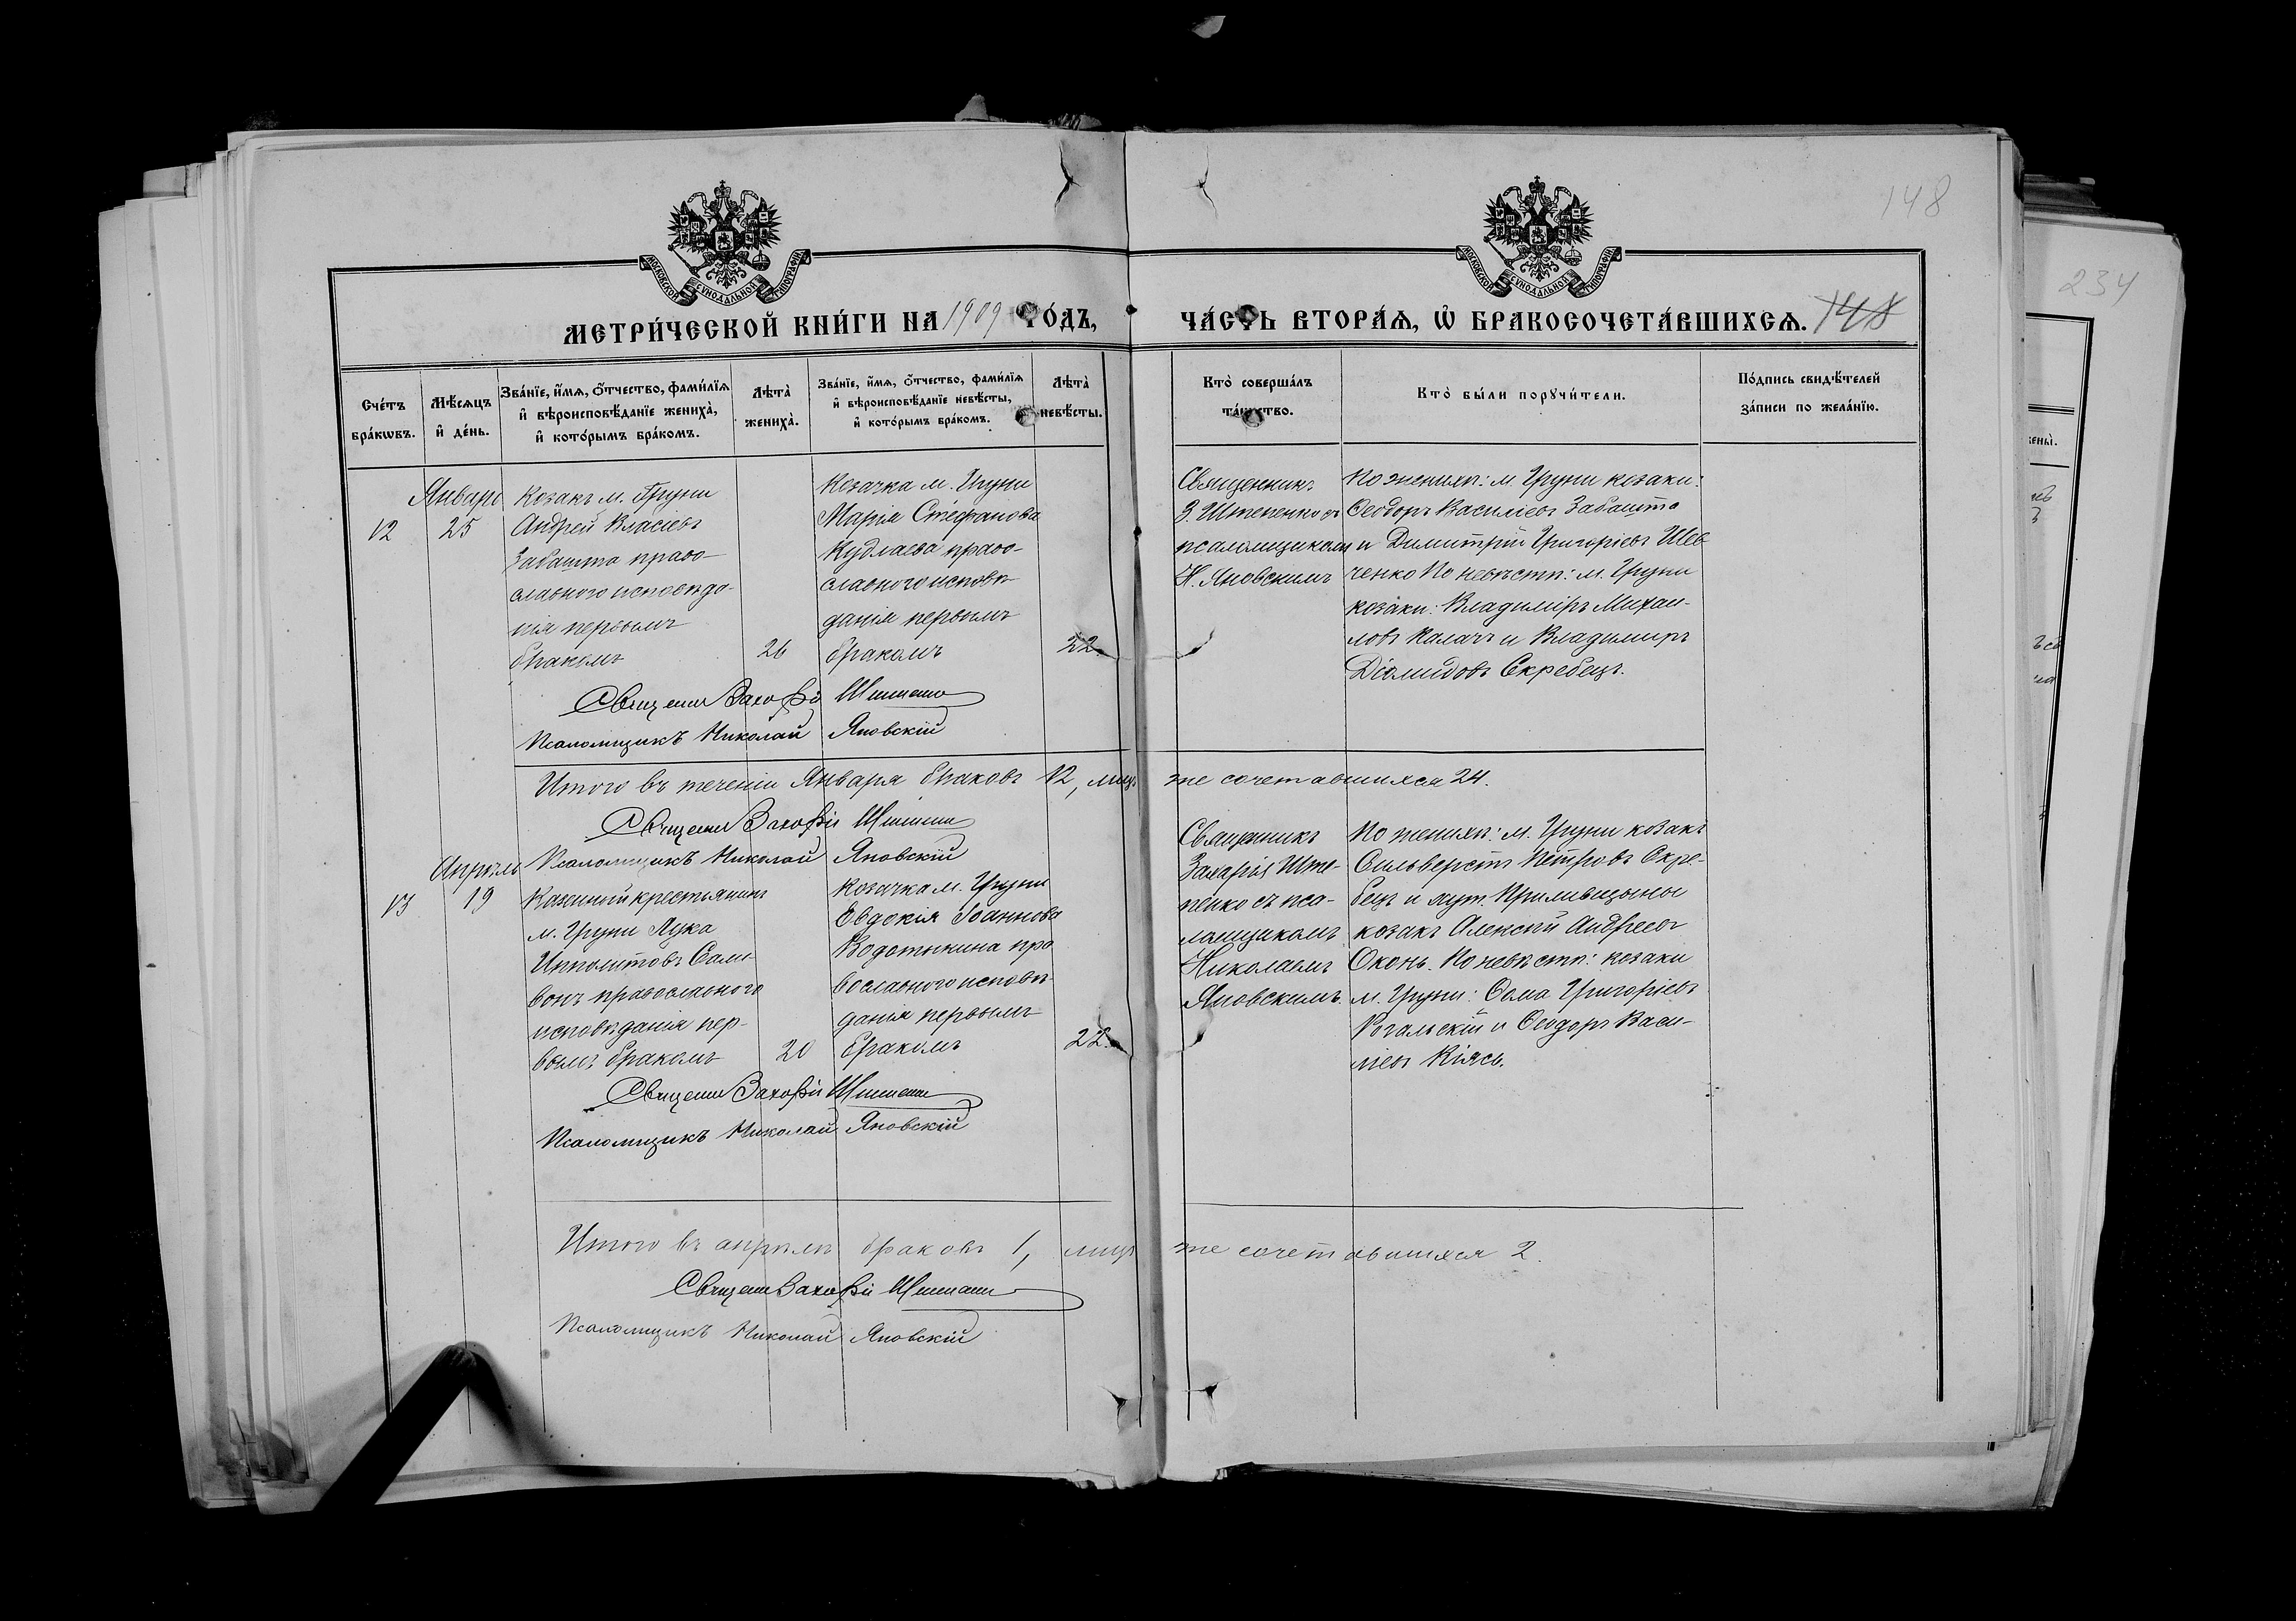 148
234
МОСКОВСКОЙ СѴНОДАЛЬНОЙ ТИПОГРАФІИ
МОСКОВСКОЙ СѴНОДАЛЬНОЙ ТИПОГРАФІИ
МЕТРИ́ЧЕСКОЙ КНИ́ГИ НА 1909 ГО́ДЪ,
ЧА́СТЬ ВТОРА́Я, Ѡ҆ БРАКОСОЧЕТА́ВШИХСЯ. 148
Сче́тъ бра́кѡвъ.
Мѣ́сяцъ и҆ де́нь.
Зва́нїе, и҆́мѧ, ѻ҆́тчество, фами́лїѧ
и҆ вѣроисповѣ́данїе жениха̀,
и҆ кото́рымъ бра́комъ.
Лѣта̀
жениха̀.
Зва́нїе, и҆́мѧ, ѻ҆́тчество, фами́лїѧ
и҆ вѣроисповѣ́данїе невѣ́сты,
и҆ кото́рымъ бра́комъ.
Лѣта̀
невѣ́сты.
Кто̀ соверша́лъ
та́инство.
Кто̀ бы́ли порꙋчи́тели.
По́дпись свидѣ́телей
за́писи по жела́нїю.
12
Январь
25
Козакъ м. Груни
Андрей Власіевъ
Забашта право-
славнаго исповѣда-
нія первымъ
бракомъ
26
Козачка м. Груни
Марія Стефанова
Кудлаева право-
славнаго исповѣ-
данія первымъ
бракомъ
22.
Священникъ
З. Штепенко съ
псаломщикомъ
Н. Яновскимъ
По женихѣ: м. Груни козаки:
Ѳеодоръ Василіевъ Забашта
и Димитрій Григоріевъ Шев-
ченко По невѣстѣ: м. Груни
козаки: Владиміръ Михаи-
ловъ Калачъ и Владимиръ
Діомидовъ Скребецъ.
Священ Захарій Штепенко
Псаломщикъ Николай Яновскій
Итого въ теченіи Января браковъ 12, лицъ же сочетавшихся 24.
Священ Захарій Штепенко
Псаломщикъ Николай Яновскій
13
Апрѣль
19
Казенный крестьянинъ
м. Груни Лука
Ипполитовъ Сали-
вонъ православнаго
исповѣданія пер-
вымъ бракомъ
20
Козачка м. Груни
Евдокія Іоаннова
Водотыкина пра
вославнаго исповѣ-
данія первымъ
бракомъ
22.
Священникъ
Захарія Ште-
пенко съ пса-
ломщикомъ
Николаемъ
Яновскимъ.
По женихѣ: м. Груни козакъ
Сильверстъ Петровъ Скре-
бецъ и хут. Прилившины
козакъ Алексій Андреевъ
Оконь. По невѣстѣ: козаки
м. Груни: Ѳома Григоріевъ
Рогальскій и Ѳеодоръ Васи-
льевъ Кіясь.
Священ Захарій Штепенко
Псаломщикъ Николай Яновскій
Итого въ апрѣлѣ браковъ 1, лицъ же сочетавшихся 2.
Священ Захарій Штепенко
Псаломщикъ Николай Яновскій